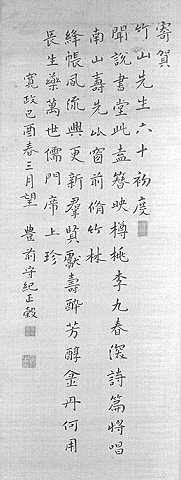 寄賀
竹山先生六十初度
聞說書堂此盍簪映樽桃李九春深詩篇將唱
南山壽先以窗前脩竹林
絳帳風流興更新羣賢獻壽醉芳醇金丹何用
長生藥萬世儒門席上珍
寬政己酉春三月望 豊前守紀正穀